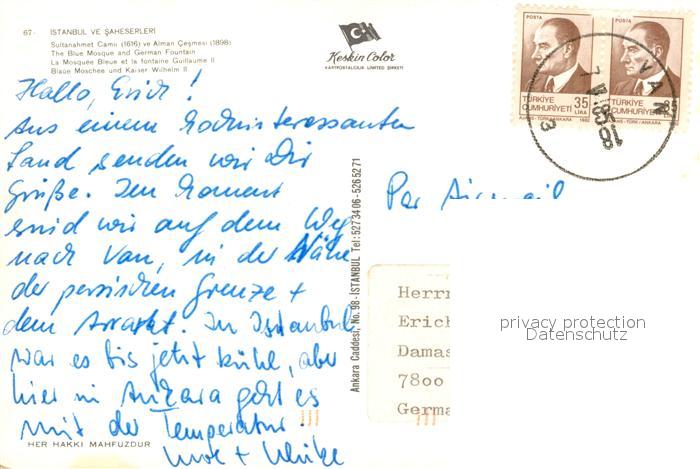 67- ISTANBUL VE ŞAHESERLERİ
Sultanahmet Camii (1616) ve Alman Çeşmesi (1898)
The Blue Mosque and German Fountain
La Mosquée Bleue et la fontaine Guillaume II
Blaue Moschee und Kaiser Wilhelm II
Keskin Color
KARTPOSTALCILIK LIMITED ŞİRKETİ
Hallo, Erich!
Aus einem hochinteressanten
Land senden wir Dir
Grüße. Im Moment
sind wir auf dem Weg
nach Van, in der Nähe
der persischen Grenze +
dem Ararat. In Istanbul
war es bis jetzt kühl, aber
hier in Ankara geht es
mit der Temperatur!
Uwe + Ulrike
HER HAKKI MAHFUZDUR
Ankara Caddesi, No. 98-ISTANBUL Tel: 5273406-5265271
POSTA
TÜRKİYE 35
CUMHURİYETİ LİRA
AJANS-TÜRK/ANKARA 1982
POSTA
TÜRKİYE 35
CUMHURİYETİ
AJANS-TÜRK/ANKARA
VAN
18
3
Par Airmail
Herrn
Erich
Damas
7800
Germa
privacy protection
Datenschutz